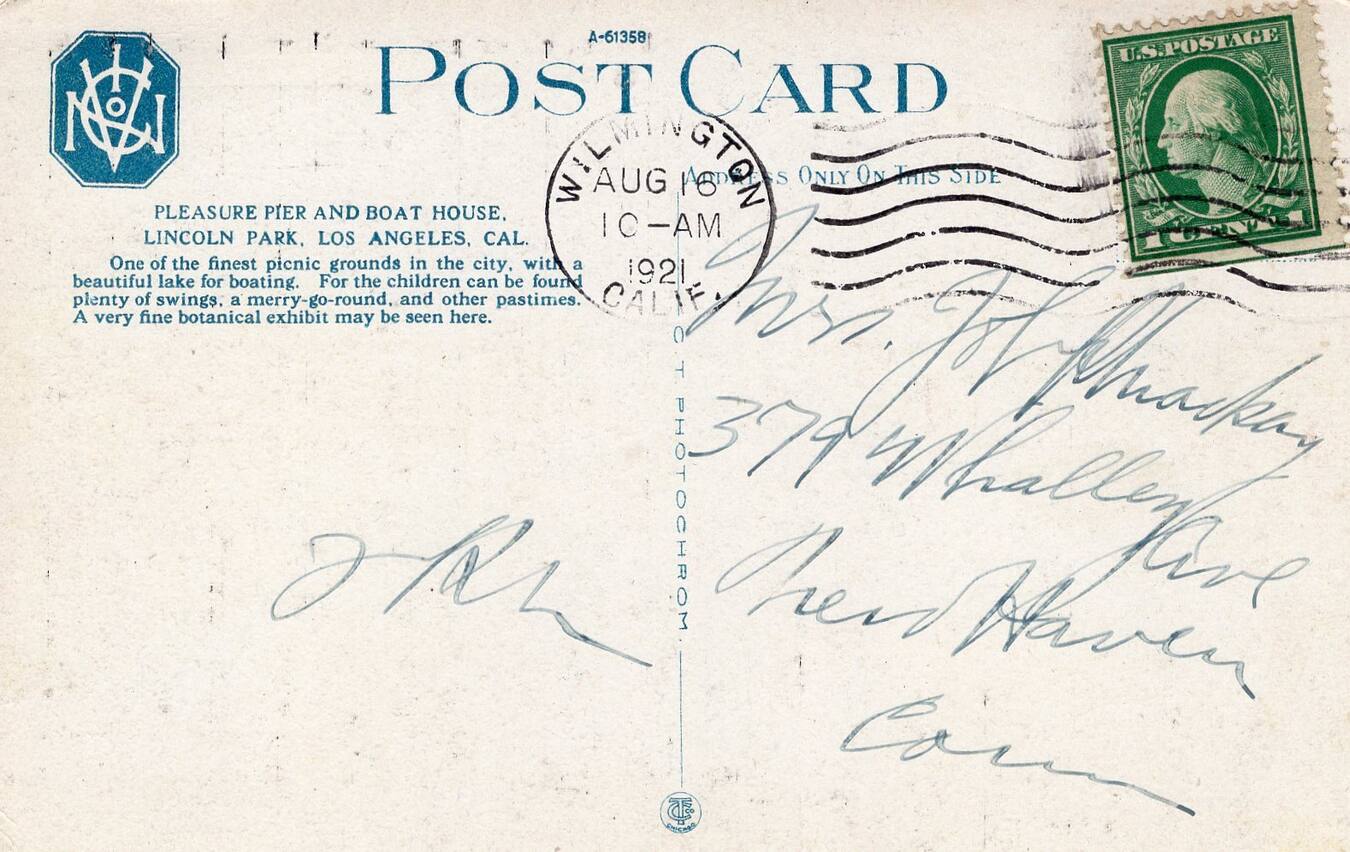 A-61358
POST CARD
U.S. POSTAGE
1 CENT 1
WILMINGTON
AUG 16
10-AM
1921
CALIF.
ADDRESS ONLY ON THIS SIDE
PLEASURE PIER AND BOAT HOUSE,
LINCOLN PARK, LOS ANGELES, CAL.
One of the finest picnic grounds in the city, with a
beautiful lake for boating. For the children can be found
plenty of swings, a merry-go-round, and other pastimes.
A very fine botanical exhibit may be seen here.
Mrs. Mackay
379 Whalley Ave
New Haven
Conn
PHOTOCHROM.
CHICAGO